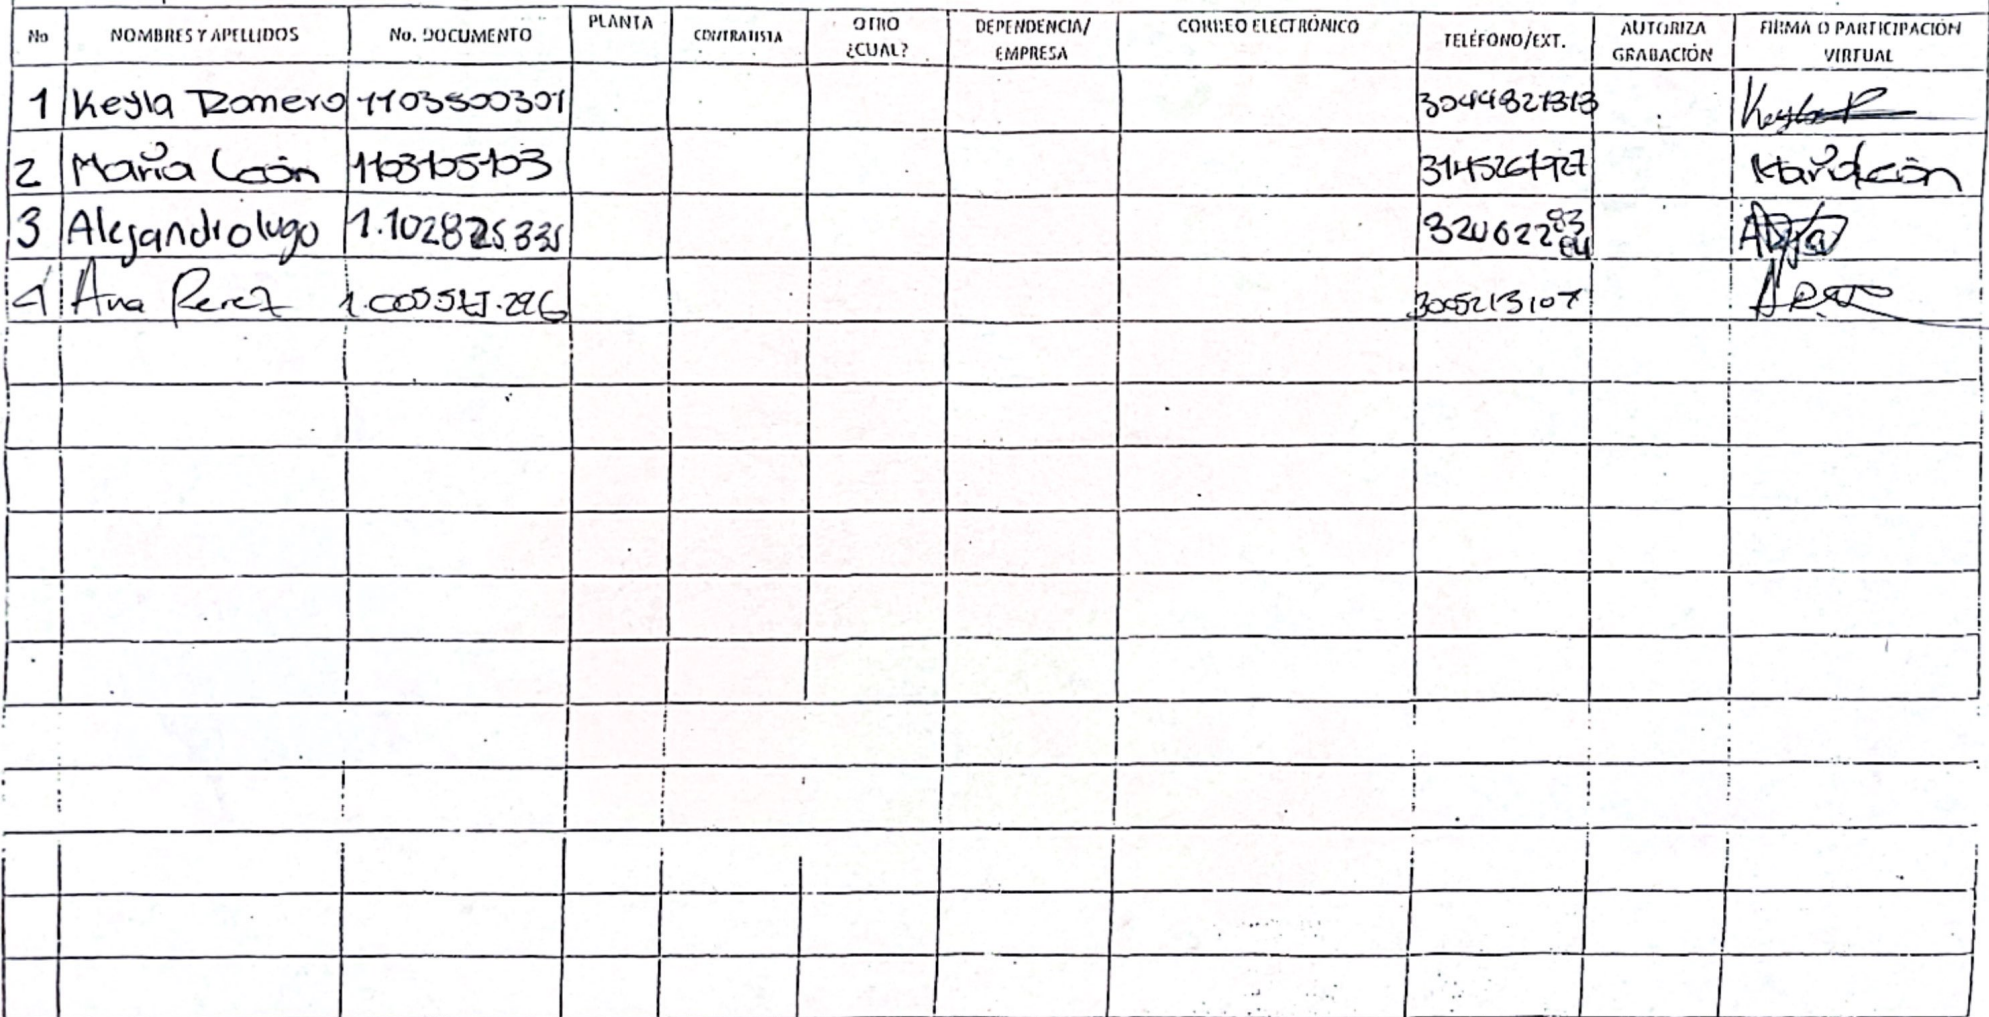 No NOMBRES Y APELLIDOS No. DOCUMENTO PLANTA CONTRATISTA OTRO ¿CUAL? DEPENDENCIA/ EMPRESA CORREO ELECTRÓNICO TELÉFONO/EXT. AUTORIZA GRABACIÓN FIRMA O PARTICIPACIÓN VIRTUAL
1 Keyla Romero 1103500301 Keyla R
2 María León 1103105103 María León
3 Alejandro lugo
4 Ana Perez 3005213107